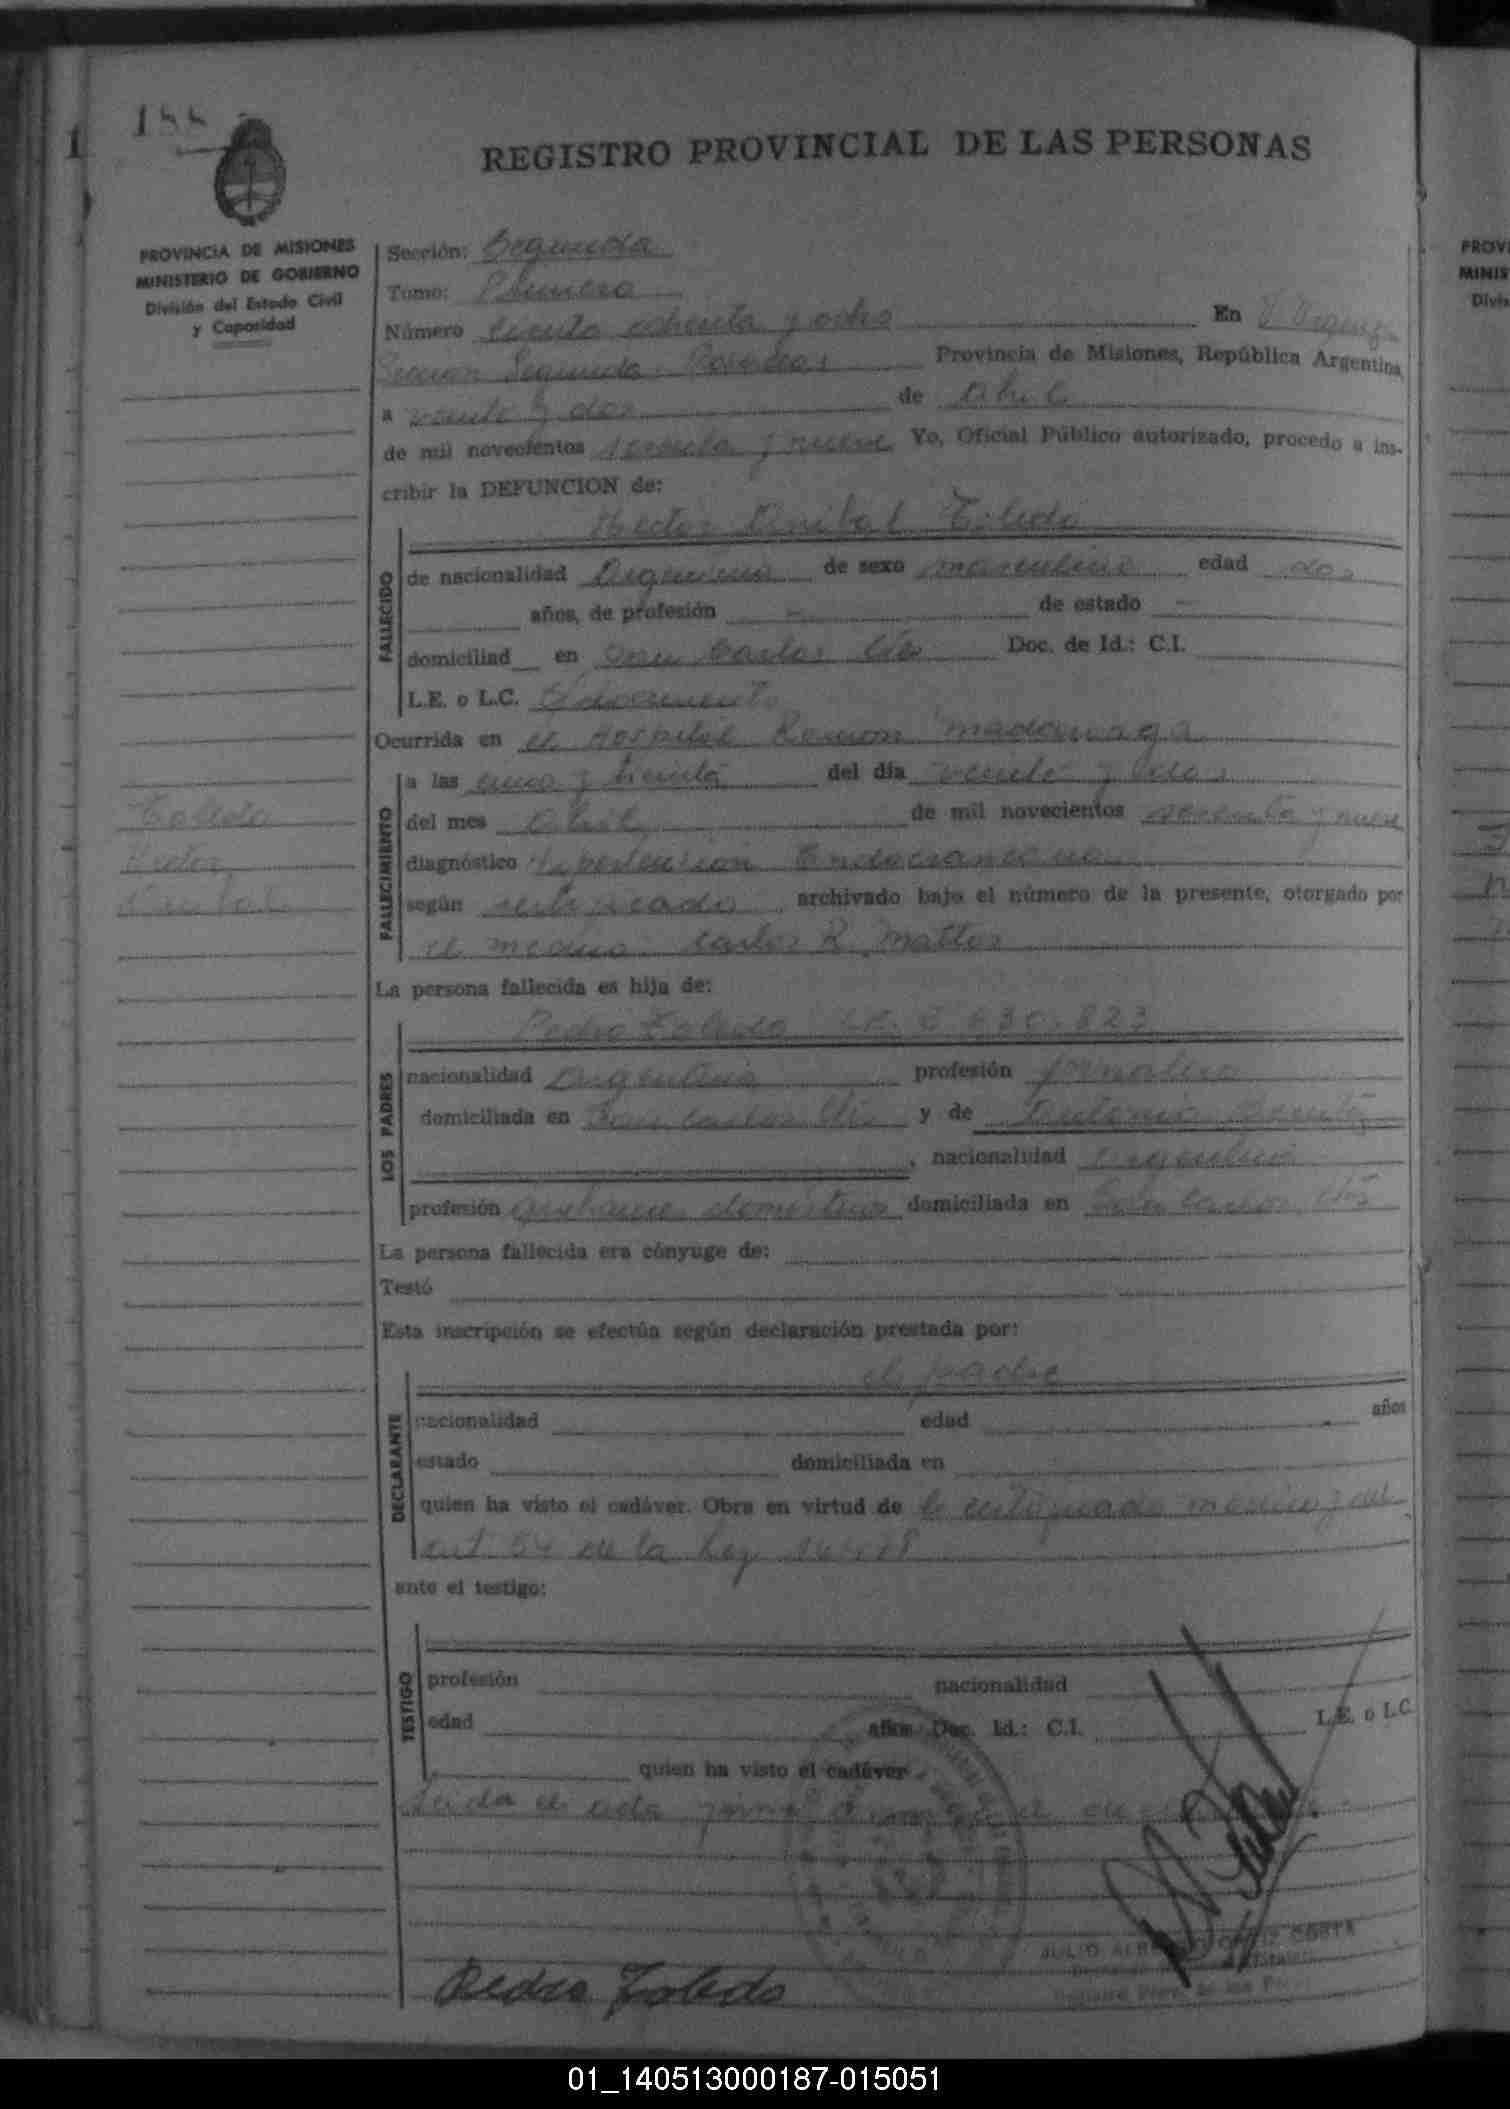 188
REGISTRO PROVINCIAL DE LAS PERSONAS
PROVINCIA DE MISIONES
MINISTERIO DE GOBIERNO
División del Estado Civil
y Capacidad
Sección: Segunda
Tomo: Primero
Número ciento ochenta y ocho En
Sección Segunda Posadas Provincia de Misiones, República Argentina,
a veinte y dos de Abril
de mil novecientos setenta y nueve Yo, Oficial Público autorizado, procedo a ins-
cribir la DEFUNCION de:
Hector Anibal Toledo
FALLECIDO
de nacionalidad Argentina de sexo masculino edad dos
años, de profesión — de estado —
domiciliad en San Carlos Mis Doc. de Id.: C.I.
L.E. o L.C.
Ocurrida en el Hospital Ramon Madariaga
FALLECIMIENTO
a las una y treinta del día veinte y dos
del mes Abril de mil novecientos setenta y nueve
diagnóstico Hipertension Endocraneana
según certificado archivado bajo el número de la presente, otorgado por
el medico Carlos R. Mattos
Toledo
Hector
Anibal
La persona fallecida es hija de:
LOS PADRES
Pedro Toledo
nacionalidad Argentina profesión jornalero
domiciliada en San Carlos Mis y de Antonia
, nacionalidad Argentina
profesión quehaceres domesticos domiciliada en San Carlos Mis
La persona fallecida era cónyuge de:
Testó
Esta inscripción se efectúa según declaración prestada por:
DECLARANTE
el padre
nacionalidad edad años
estado domiciliada en
quien ha visto el cadáver. Obra en virtud de le certificado medico y del
art. 54 de la Ley
ante el testigo:
TESTIGO
profesión nacionalidad
edad años Doc. Id.: C.I. L.E. o L.C.
quien ha visto el cadáver
Leida el acta
Pedro Toledo
JULIO COSTA
PROV
MINIS
Divis
01_140513000187-015051